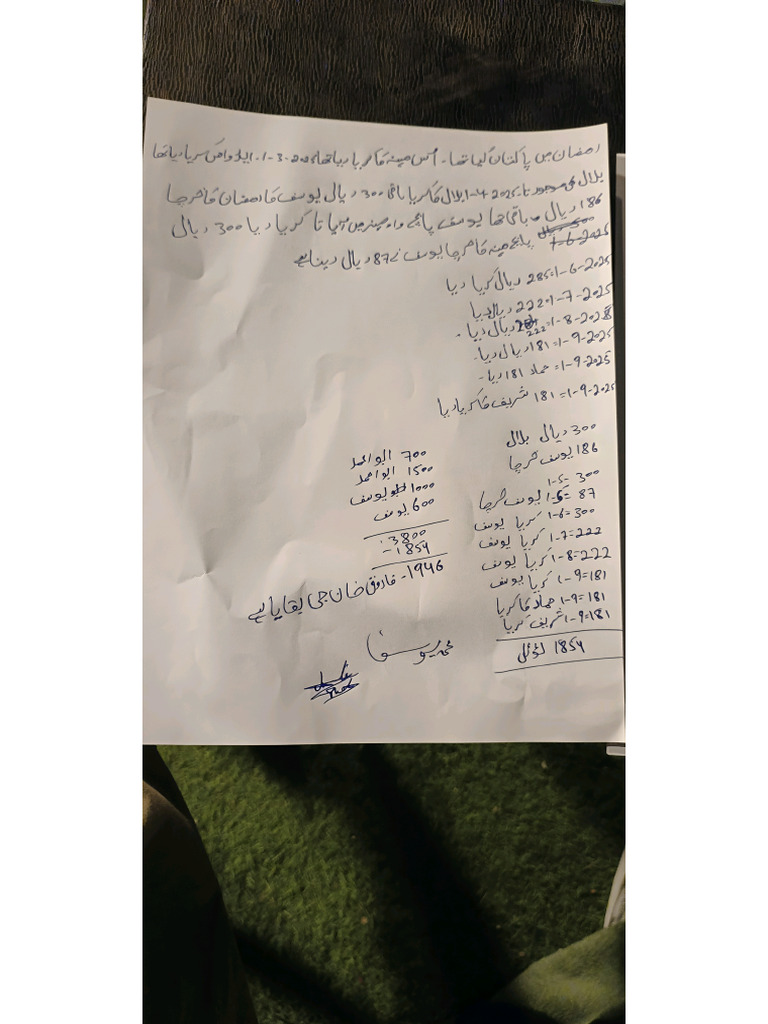 رمضان میں پاکستان گیا تھا۔ اس مہینہ کا کریا دیا تھا 1-3-2025
بلال 1-4-2025 بلال کا کریا باقی 300 ریال یوسف کا رمضان کا خرچا
186 ریال باقی تھا یوسف پانچے ماہ مہینہ میں آیا تا کریا دیا 300 ریال
7-6-2025 پانچے مہینہ کا خرچا یوسف نے 87 ریال دینا ہے
1-6-2025=285 ریال کریا دیا
1-7-2025=222 ریال دیا
1-8-2025=222 ریال دیا۔
1-9-2025=181 ریال دیا۔
1-9-2025= حماد 181 دیا۔
1-9-2025=181 شریف کا کریا دیا
300 ریال بلال
186 یوسف خرچا
1-5= 300
1-5= 87 یوسف خرچا
1-6=300 کریا یوسف
1-7=222 کریا یوسف
1-8=222 کریا یوسف
1-9=181 کریا یوسف
1-9=181 حماد کا کریا
1-9=181 شریف کریا
1854 ٹوٹل
700 ابو احمد
1500 ابو احمد
1000 یوسف
600 یوسف
3800
-1854
1946- فاروق خان جی بقایا ہے
محمد یوسف